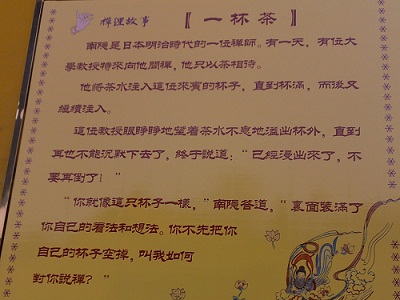 禪理故事 【一杯茶】
南隱是日本明治時代的一位禪師。有一天,有位大
學教授特來向他問禪,他只以茶相待。
他將茶水注入這位來賓的杯子,直到杯滿,而後又
繼續注入。
這位教授眼睜睜地望着茶水不息地溢出杯外,直到
再也不能沉默下去了,終于說道:“已經漫出來了,不
要再倒了!”
“你就像這只杯子一樣,”南隱答道,”裏面裝滿了
你自己的看法和想法。你不先把你
自己的杯子空掉,叫我如何
對你說禪?”